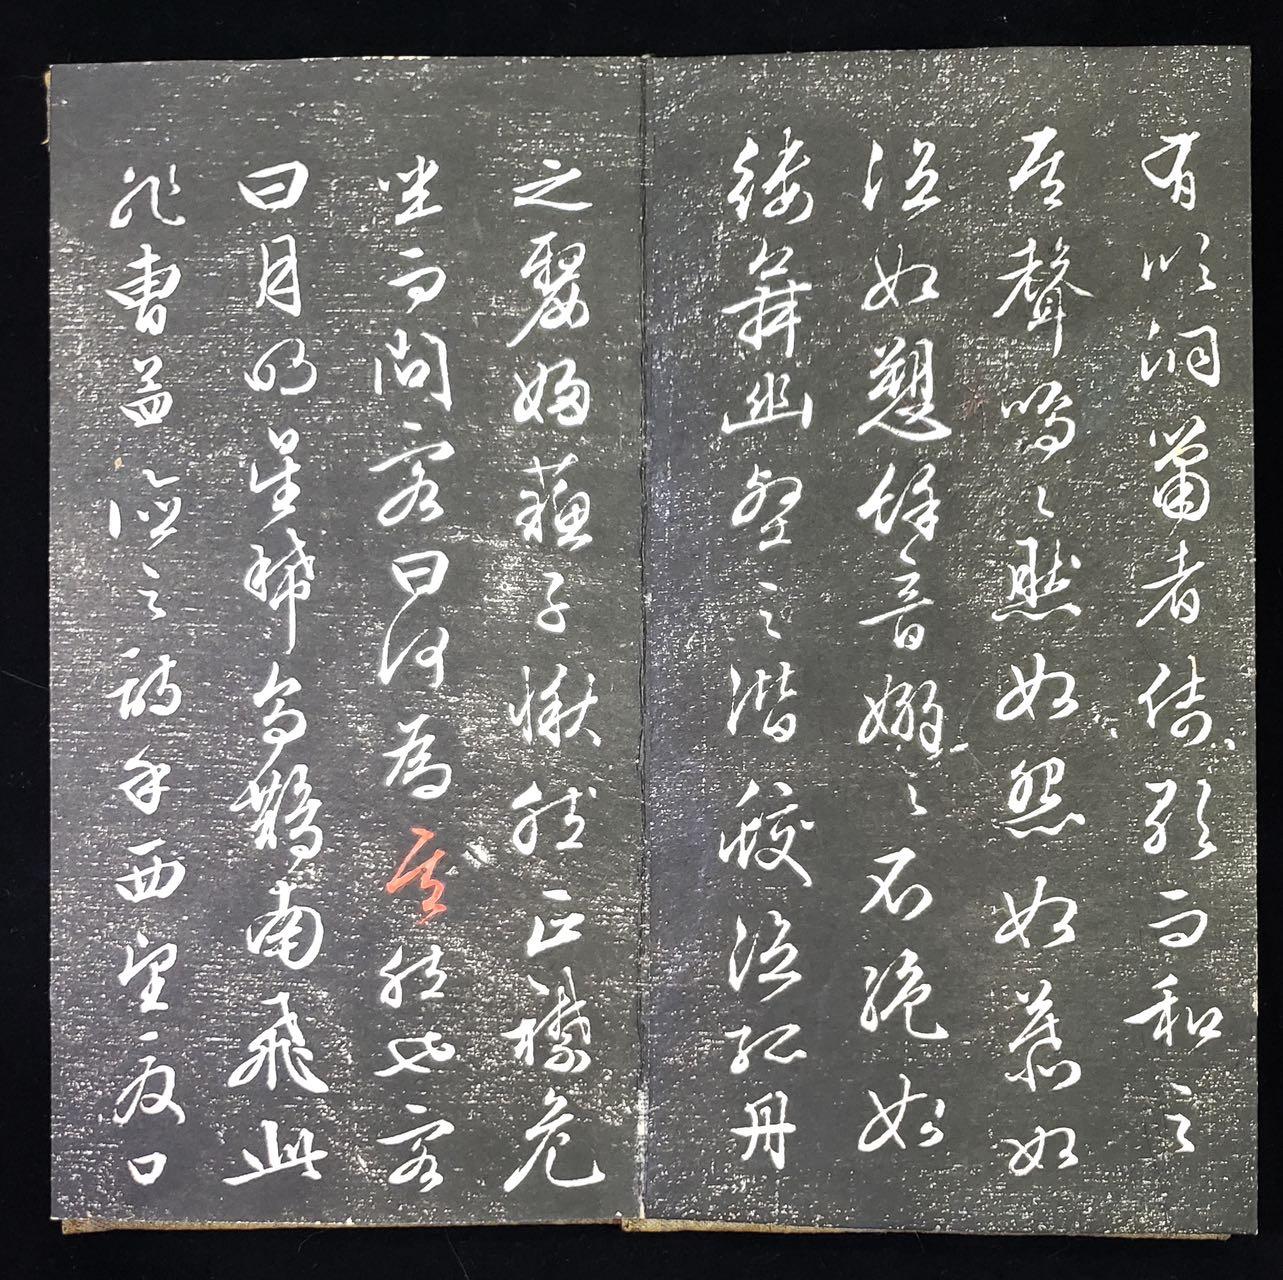 有吹洞簫者倚歌而和之
其聲嗚々然如怨如慕如
泣如愬餘音嫋々不絕如
縷舞幽壑之潛蛟泣孤舟
之嫠婦蘇子愀然正襟危
坐而問客曰何為其然也客
曰月明星稀烏鵲南飛此
非曹孟德之詩乎西望夏口